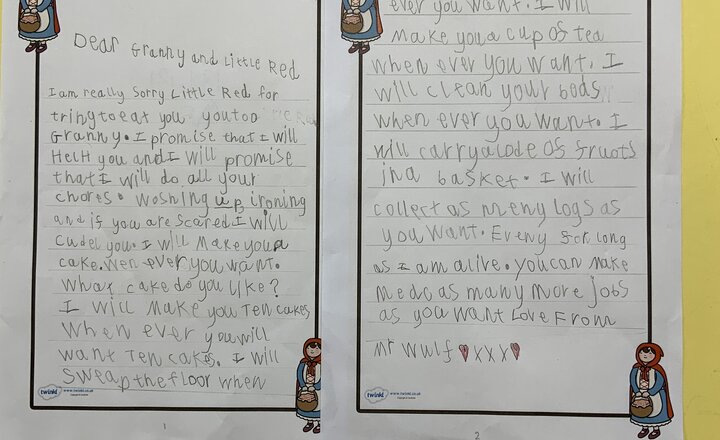 Dear Granny and Little Red
I am really Sorry Little Red for
tringtoeat you youtoo
Granny. I promise that I will
HelH you and I will promise
that I will do all your
chores. woshing up ironing
and if you are scared I will
Cudel you. I will Make you a
cake. wen ever you want.
What cake do you like?
I will Make you Ten cakes
when ever you will
want Ten cakes. I will
Sweap the floor when
twinkl www.twinkl.co.uk
1
ever you want. I will
Make you a cup of tea
when ever you want. I
will clean your beds
when ever you want. I
will carry a lode of fruots
in a basket. I will
collect as meny logs as
you want. Eveny for long
as I am alive. you can make
me do as many more jobs
as you want Love From
Mr Wulf xxx
twinkl www.twinkl.co.uk
2